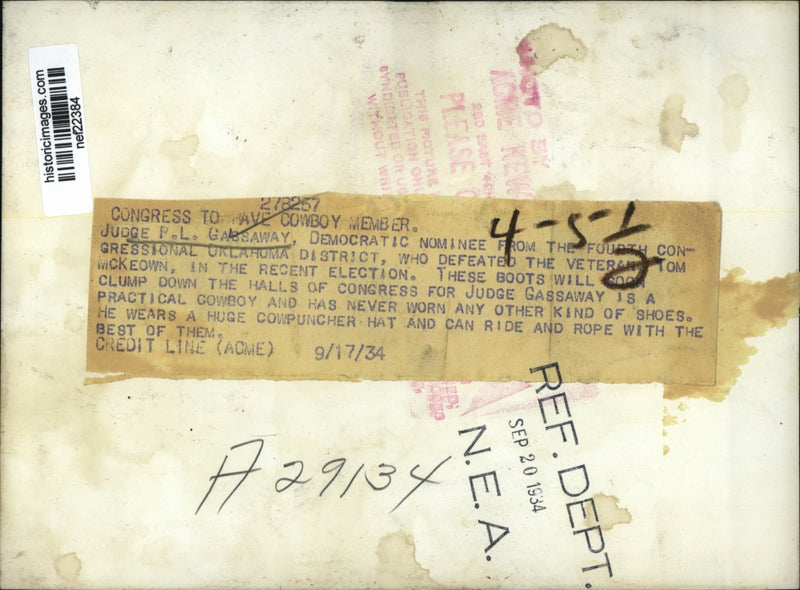 historicimages.com
nef22384
ACME NEW
PLEASE
THIS PICTURE
PUBLICATION ON
SYNDICATED OR
WITHOUT
278257
CONGRESS TO HAVE COWBOY MEMBER.
JUDGE P.L. GASSAWAY, DEMOCRATIC NOMINEE FROM THE FOURTH CON-
GRESSIONAL OKLAHOMA DISTRICT, WHO DEFEATED THE VETERAN TOM
MCKEOWN, IN THE RECENT ELECTION. THESE BOOTS WILL SOON
CLUMP DOWN THE HALLS OF CONGRESS FOR JUDGE GASSAWAY IS A
PRACTICAL COWBOY AND HAS NEVER WORN ANY OTHER KIND OF SHOES.
HE WEARS A HUGE COWPUNCHER HAT AND CAN RIDE AND ROPE WITH THE
BEST OF THEM.
CREDIT LINE (ACME) 9/17/34
4-5-1
2
A 29134
REF. DEPT.
SEP 20 1934
N.E.A.